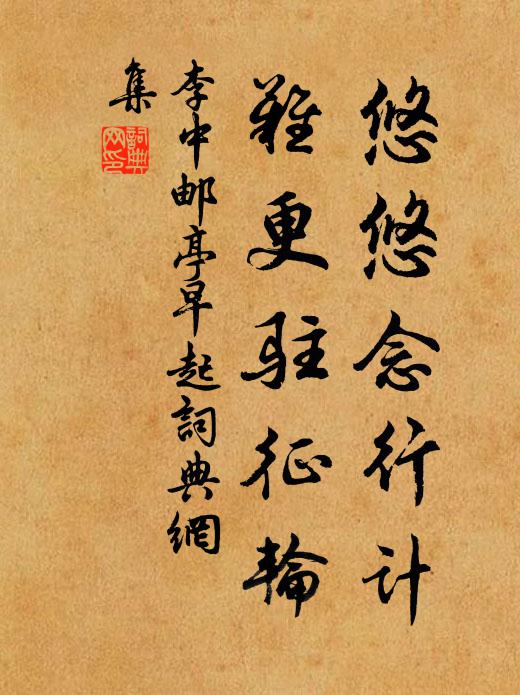 悠悠念行计
难更驻征轮
李中邮亭早起词典網
集
詞典
网印